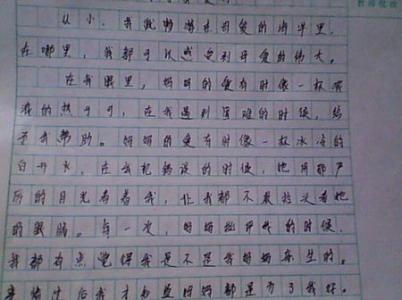 从小,我就畅游在母爱的海洋里,
在哪里,我都可以感受到母爱的伟大。
在我眼里,妈妈的爱有时像一杯浓
浓的热可可,在我遇到困难的时候,给
予我帮助。妈妈的爱有时像一杯冰冷的
白开水,在我犯错误的时候,她用那严
厉的目光看着我,让我都不敢抬头看她
的眼睛。每一次,妈妈批评我的时候,
我都有点觉得我是不是我妈妈亲生的。
我才知道妈妈都是为了我好。